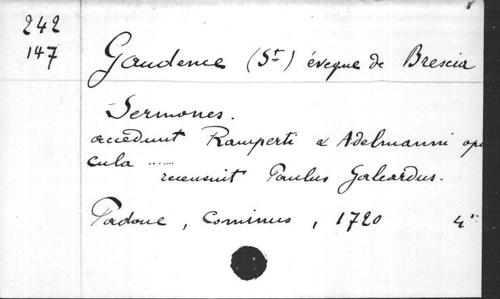 242
147
Gaudence (St) évêque de Brescia
Sermones.
accedunt Ramperti & Adelmanni opu
cula ......
recensuit Paulus Galeardus.
Padoue, Cominus, 1720 4°